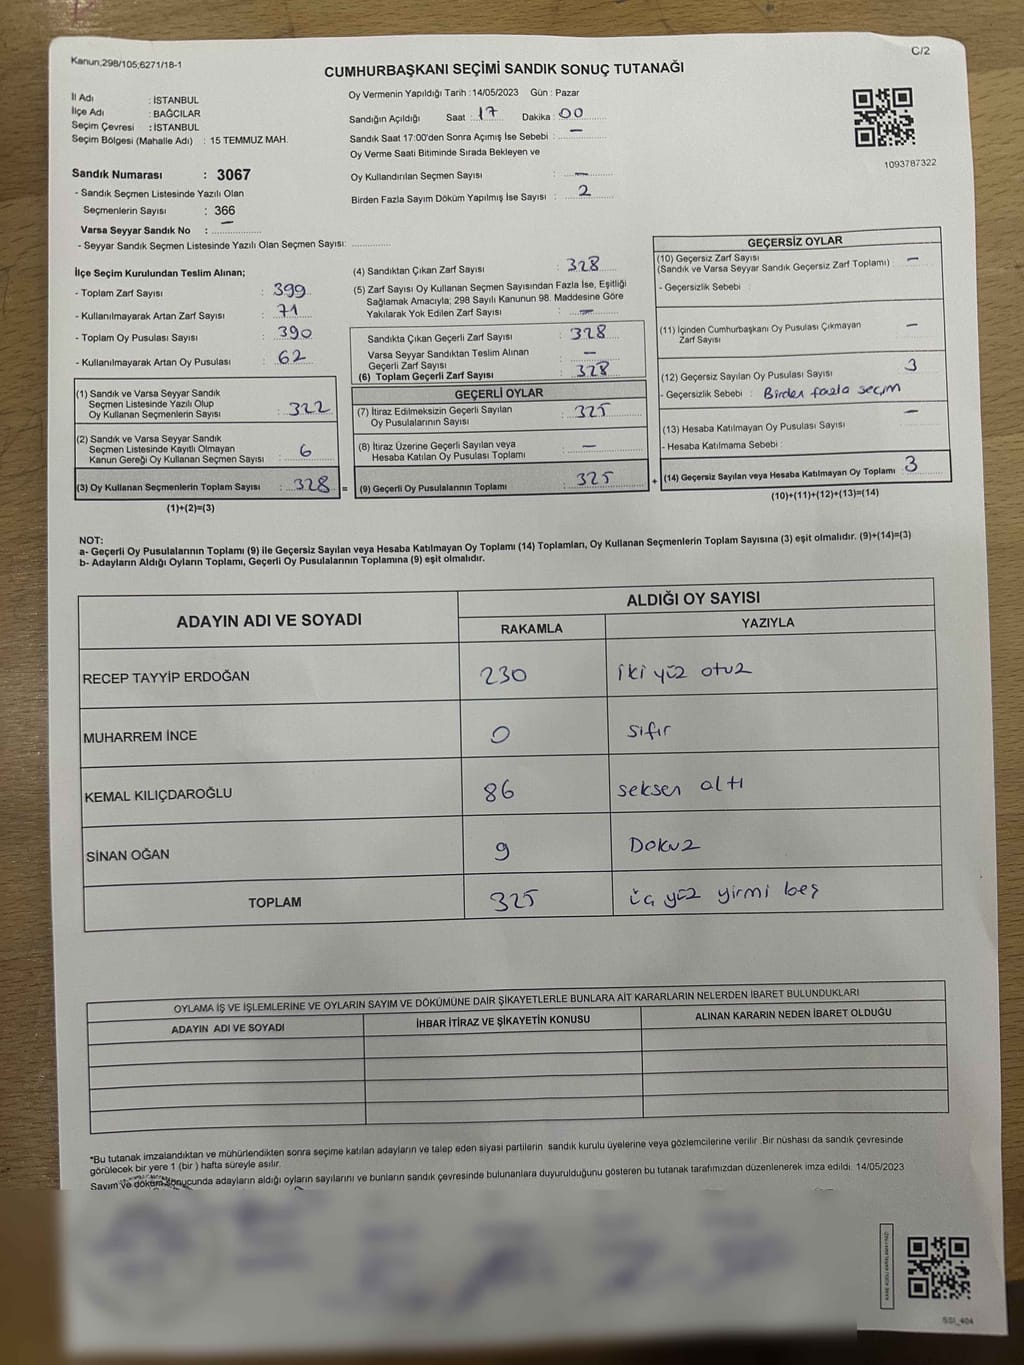 Kanun;298/105;6271/18-1
C/2
CUMHURBAŞKANI SEÇİMİ SANDIK SONUÇ TUTANAĞI
İl Adı : İSTANBUL
İlçe Adı : BAĞCILAR
Seçim Çevresi : İSTANBUL
Seçim Bölgesi (Mahalle Adı) : 15 TEMMUZ MAH.
Sandık Numarası : 3067
- Sandık Seçmen Listesinde Yazılı Olan
Seçmenlerin Sayısı : 366
Varsa Seyyar Sandık No : —
- Seyyar Sandık Seçmen Listesinde Yazılı Olan Seçmen Sayısı: ..............
Oy Vermenin Yapıldığı Tarih :14/05/2023 Gün : Pazar
Sandığın Açıldığı Saat : 17 Dakika : 00
Sandık Saat 17:00'den Sonra Açımış İse Sebebi : —
Oy Verme Saati Bitiminde Sırada Bekleyen ve
Oy Kullandırılan Seçmen Sayısı : —
Birden Fazla Sayım Döküm Yapılmış İse Sayısı : 2
1093787322
İlçe Seçim Kurulundan Teslim Alınan;
- Toplam Zarf Sayısı : 399
- Kullanılmayarak Artan Zarf Sayısı : 71
- Toplam Oy Pusulası Sayısı : 390
- Kullanılmayarak Artan Oy Pusulası : 62
(1) Sandık ve Varsa Seyyar Sandık
Seçmen Listesinde Yazılı Olup
Oy Kullanan Seçmenlerin Sayısı : 322
(2) Sandık ve Varsa Seyyar Sandık
Seçmen Listesinde Kayıtlı Olmayan
Kanun Gereği Oy Kullanan Seçmen Sayısı : 6
(3) Oy Kullanan Seçmenlerin Toplam Sayısı : 328 =
(1)+(2)=(3)
(4) Sandıktan Çıkan Zarf Sayısı : 328
(5) Zarf Sayısı Oy Kullanan Seçmen Sayısından Fazla İse, Eşitliği
Sağlamak Amacıyla; 298 Sayılı Kanunun 98. Maddesine Göre
Yakılarak Yok Edilen Zarf Sayısı : —
Sandıkta Çıkan Geçerli Zarf Sayısı : 328
Varsa Seyyar Sandıktan Teslim Alınan
Geçerli Zarf Sayısı : —
(6) Toplam Geçerli Zarf Sayısı : 328
GEÇERLİ OYLAR
(7) İtiraz Edilmeksizin Geçerli Sayılan
Oy Pusulalarının Sayısı : 325
(8) İtiraz Üzerine Geçerli Sayılan veya
Hesaba Katılan Oy Pusulası Toplamı : —
(9) Geçerli Oy Pusulalarının Toplamı : 325 +
GEÇERSİZ OYLAR
(10) Geçersiz Zarf Sayısı
(Sandık ve Varsa Seyyar Sandık Geçersiz Zarf Toplamı) : —
- Geçersizlik Sebebi :
(11) İçinden Cumhurbaşkanı Oy Pusulası Çıkmayan
Zarf Sayısı —
(12) Geçersiz Sayılan Oy Pusulası Sayısı 3
- Geçersizlik Sebebi : Birden fazla seçim
(13) Hesaba Katılmayan Oy Pusulası Sayısı —
- Hesaba Katılmama Sebebi :
(14) Geçersiz Sayılan veya Hesaba Katılmayan Oy Toplamı 3
(10)+(11)+(12)+(13)=(14)
NOT:
a- Geçerli Oy Pusulalarının Toplamı (9) ile Geçersiz Sayılan veya Hesaba Katılmayan Oy Toplamı (14) Toplamları, Oy Kullanan Seçmenlerin Toplam Sayısına (3) eşit olmalıdır. (9)+(14)=(3)
b- Adayların Aldığı Oyların Toplamı, Geçerli Oy Pusulalarının Toplamına (9) eşit olmalıdır.
ADAYIN ADI VE SOYADI
ALDIĞI OY SAYISI
RAKAMLA YAZIYLA
RECEP TAYYİP ERDOĞAN 230 iki yüz otuz
MUHARREM İNCE 0 sıfır
KEMAL KILIÇDAROĞLU 86 seksen altı
SİNAN OĞAN 9 Dokuz
TOPLAM 325 üç yüz yirmi beş
OYLAMA İŞ VE İŞLEMLERİNE VE OYLARIN SAYIM VE DÖKÜMÜNE DAİR ŞİKAYETLERLE BUNLARA AİT KARARLARIN NELERDEN İBARET BULUNDUKLARI
ADAYIN ADI VE SOYADI İHBAR İTİRAZ VE ŞİKAYETİN KONUSU ALINAN KARARIN NEDEN İBARET OLDUĞU
*Bu tutanak imzalandıktan ve mühürlendikten sonra seçime katılan adayların ve talep eden siyasi partilerin sandık kurulu üyelerine veya gözlemcilerine verilir .Bir nüshası da sandık çevresinde
görülecek bir yere 1 (bir ) hafta süreyle asılır.
Sayım ve döküm sonucunda adayların aldığı oyların sayılarını ve bunların sandık çevresinde bulunanlara duyurulduğunu gösteren bu tutanak tarafımızdan düzenlenerek imza edildi. 14/05/2023
SSI_404